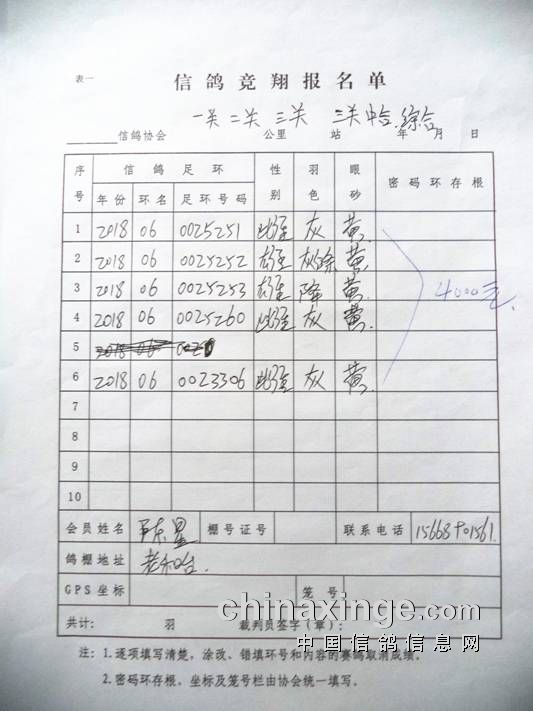 表一
信鸽竞翔报名单
一关 二关 三关 三关中合.综合
信鸽协会 公里 站 年 月 日
序号 信鸽足环 性别 羽色 眼砂 密码环存根
年份 环名 足环号码
1 2018 06 0025251 雌 灰 黄
2 2018 06 0025252 雄 灰 黄
3 2018 06 0025253 雄 降 黄
4 2018 06 0025260 雌 灰 黄
4000元
5 2018 06
6 2018 06 0023306 雌 灰 黄
7
8
9
10
会员姓名 陈星 棚号证号 联系电话
鸽棚地址 老和台
GPS坐标 笼号
共计: 羽 裁判员签字(章):
chinaxinge.com
中国信鸽信息网
注:1.逐项填写清楚,涂改、错填环号和内容的赛鸽取消成绩。
2.密码环存根、坐标及笼号栏由协会统一填写。